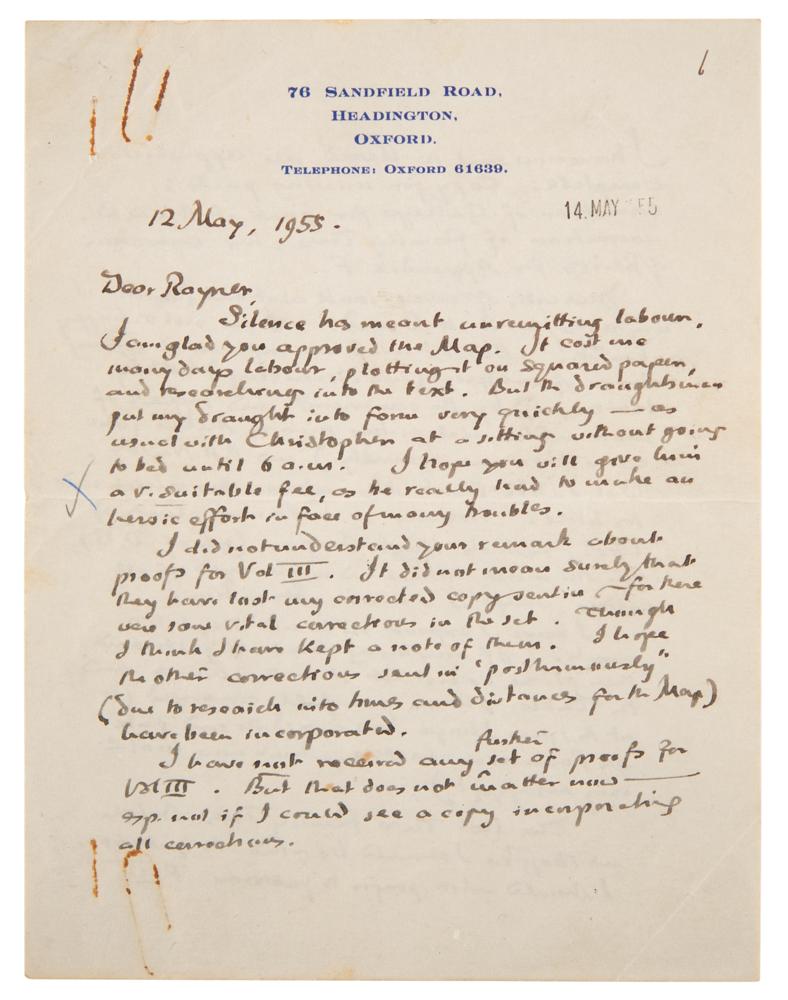 6
76 Sandfield Road,
Headington,
Oxford.
Telephone: Oxford 61639.
12 May, 1955.
14. MAY 55
Dear Rayner,
Silence has meant unremitting labour.
I am glad you approved the Map. It cost me
many days labour, plotting it on squared paper,
and researching into the text. But the draughtsman
put my draught into form very quickly — as
usual with Christopher at a sitting without going
to bed until 6 a.m. I hope you will give him
a v. suitable fee, as he really had to make an
heroic effort in face of many troubles.
I did not understand your remark about
proofs for Vol III. It did not mean surely that
they have lost my corrected copy sent in – for there
were some vital corrections in the set. Though
I think I have kept a note of them. I hope
the other corrections sent in 'posthumously"
(due to research into times and distances for the Map)
have been incorporated.
I have not received any further set of proofs for
Vol III. But that does not matter now —
esp. not if I could see a copy incorporating
all corrections.